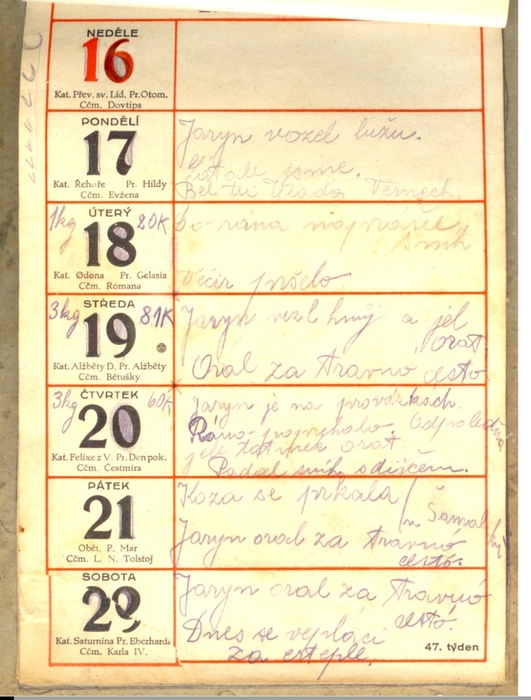 NEDĚLE
16
Kat. Přev. sv. Lid. Pr. Otom.
Ččm. Dovtipa
PONDĚLÍ
17
Kat. Řehoře Pr. Hildy
Ččm. Evžena
Jaryn vozel lužu.
jsme.
Bel tu Vláďa
1kg ÚTERÝ 80K
18
Kat. Odona Pr. Gelasia
Ččm. Romana
rána
sníh
Večír pršelo.
3kg STŘEDA 81K
19
Kat. Alžběty D. Pr. Alžběty
Ččm. Bětušky
Jaryn vezl hnůj a jel
orat.
Oral za travnó cestó
3kg ČTVRTEK 60K
20
Kat. Felixe z V. Pr. Den pok.
Ččm. Čestmíra
Jaryn je na provázkach.
Ráno poprchalo. Odpoledne
jele tatínek orat.
Padal sníh s dišťem.
PÁTEK
21
Obět. P. Mar
Ččm. L. N. Tolstoj
Koza se prkala
u
Jaryn oral za travnó
cestó.
SOBOTA
22
Kat. Saturnina Pr. Eberharda
Ččm. Karla IV.
Jaryn oral za travnó
cestó.
Dnes se veplácí
za erteple.
47. týden